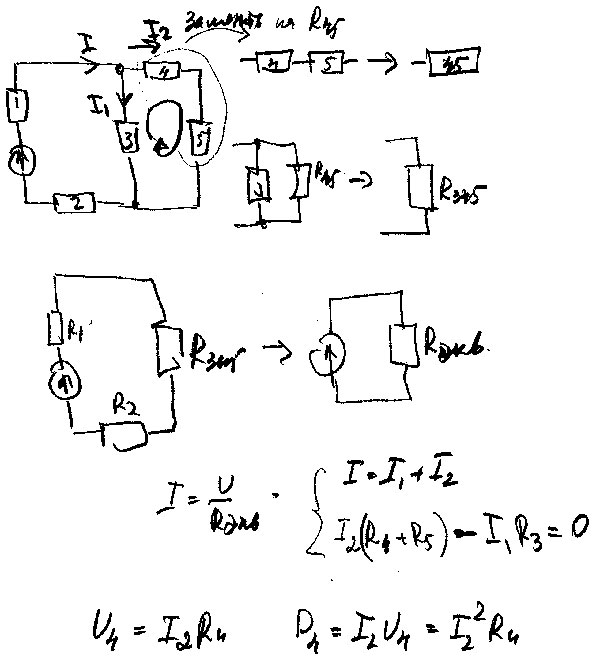 I I2 Заменить на R45
1 I1 3 4 5 2
4 5 → 45
3 R45 → R345
R1 R2 R345 → Rэкв.
I = U/Rэкв.
I = I1 + I2
I2(R4 + R5) - I1R3 = 0
U4 = I2R4 P4 = I2U4 = I2²R4